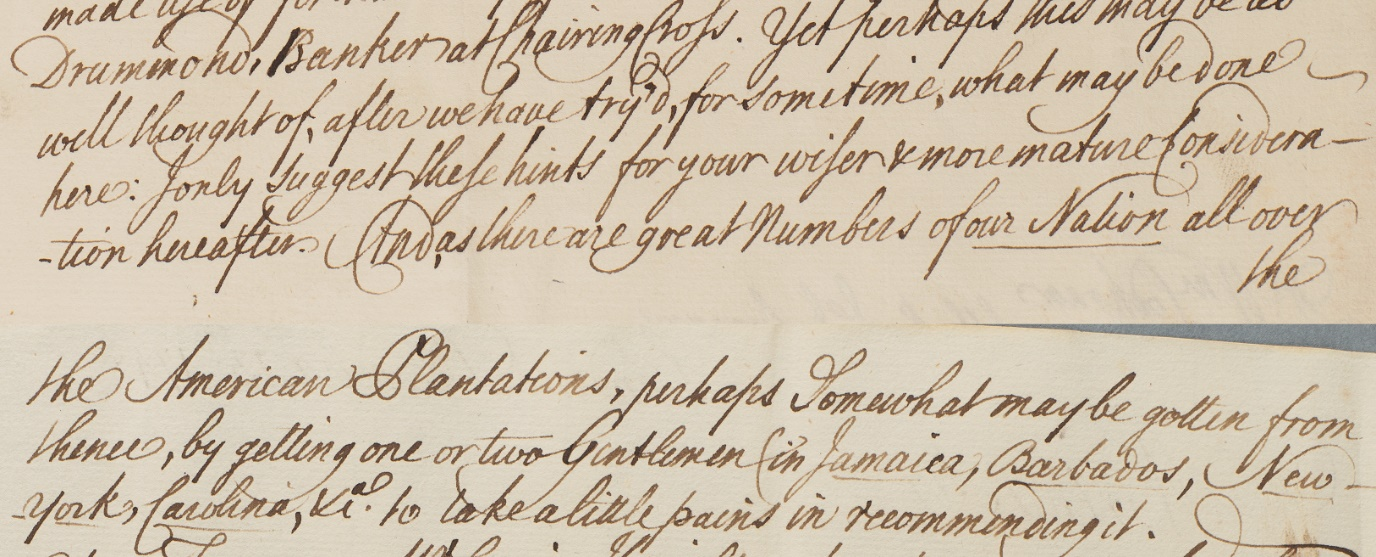 made use of for
Drummond, Banker at Chairing Cross. Yet perhaps this may be as
well thought of, after we have try'd, for sometime, what may be done
here: I only suggest these hints for your wiser & more mature Considera-
-tion hereafter. And, as there are great Numbers of our Nation all over
the
the American Plantations, perhaps Somewhat may be gotten from
thence, by getting one or two Gentlemen (in Jamaica, Barbados, New-
-york, Carolina, &ca. to take a little pains in recommending it.